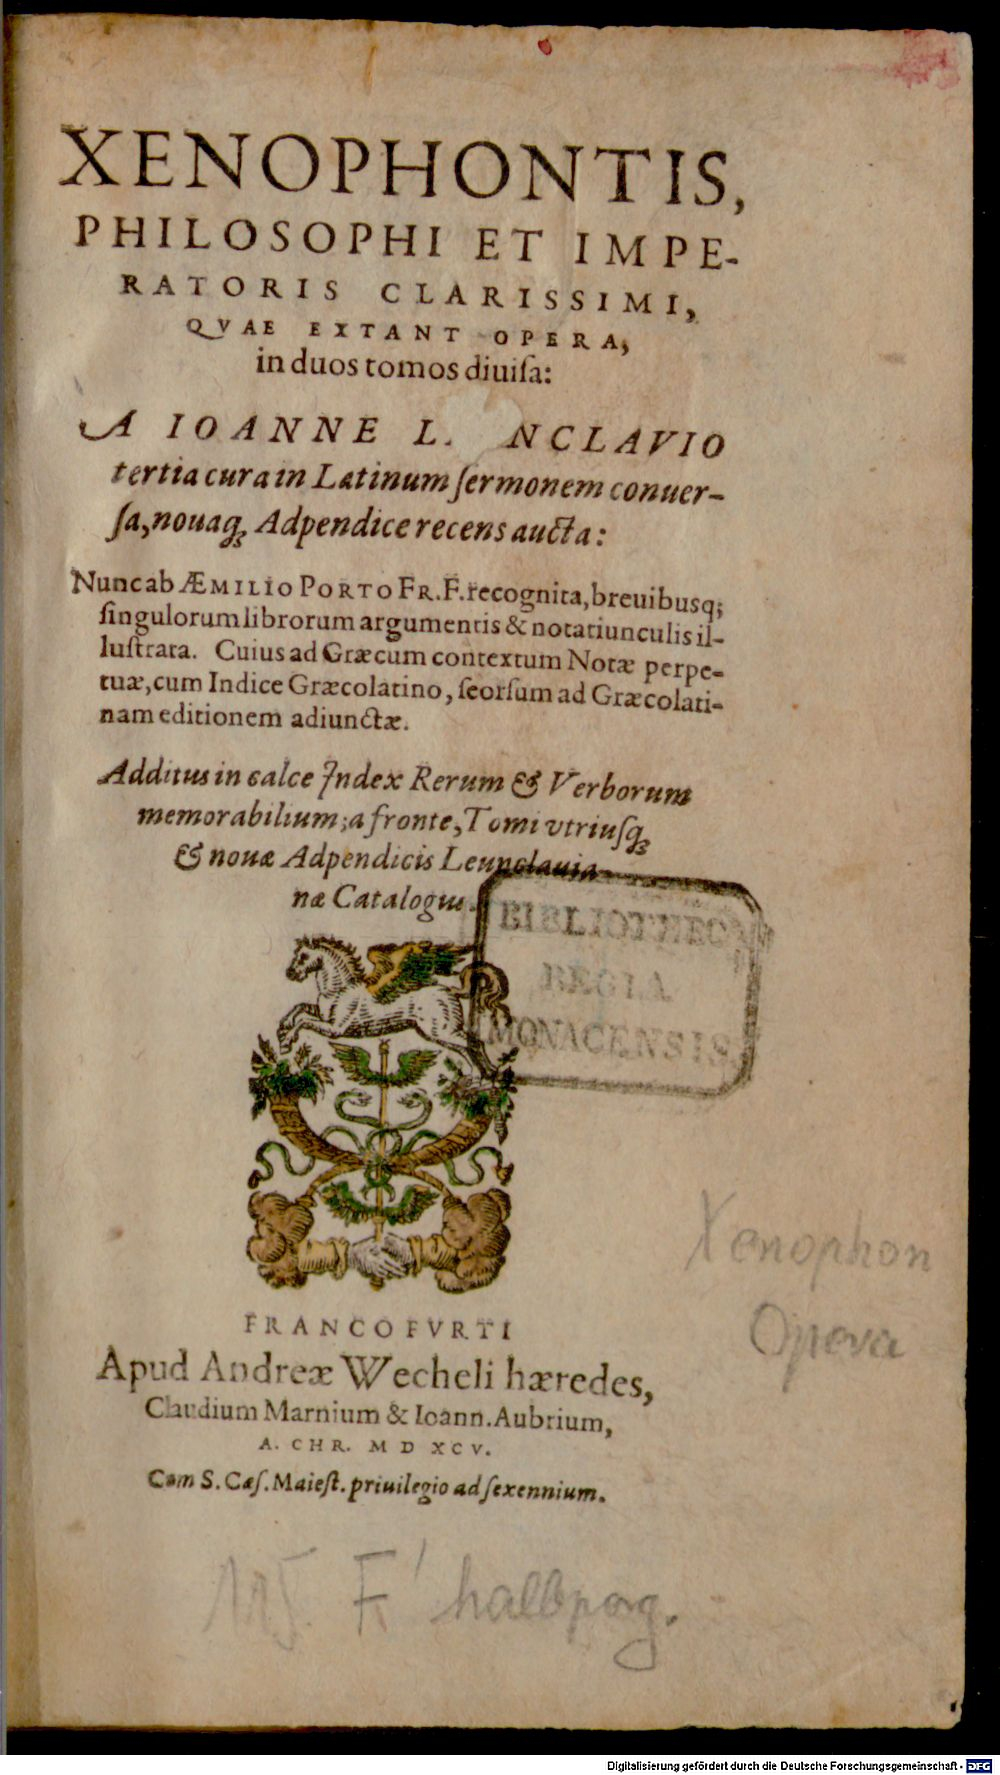 XENOPHONTIS,
PHILOSOPHI ET IMPE-
RATORIS CLARISSIMI,
QVAE EXTANT OPERA,
in duos tomos diuiſa:
A IOANNE L. NCLAVIO
tertia cura in Latinum ſermonem conuer-
ſa, nouaq; Adpendice recens aucta:
Nunc ab ÆMILIO PORTO FR. F. recognita, breuibusq;
ſingulorum librorum argumentis & notatiunculis il-
luſtrata. Cuius ad Græcum contextum Notæ perpe-
tuæ, cum Indice Græcolatino, ſeorſum ad Græcolati-
nam editionem adiunctæ.
Additus in calce Index Rerum & Verborum
memorabilium; a fronte, Tomi vtriuſq;
& nouæ Adpendicis Leunclauia-
næ Catalogus.
BIBLIOTHECA
REGIA
MONACENSIS
Xenophon
Opera
FRANCOFVRTI
Apud Andreæ Wecheli hæredes,
Claudium Marnium & Ioann. Aubrium,
A. CHR. M D XCV.
Cum S. Cæſ. Maieſt. priuilegio ad ſexennium.
Digitalisierung gefördert durch die Deutsche Forschungsgemeinschaft - DFG